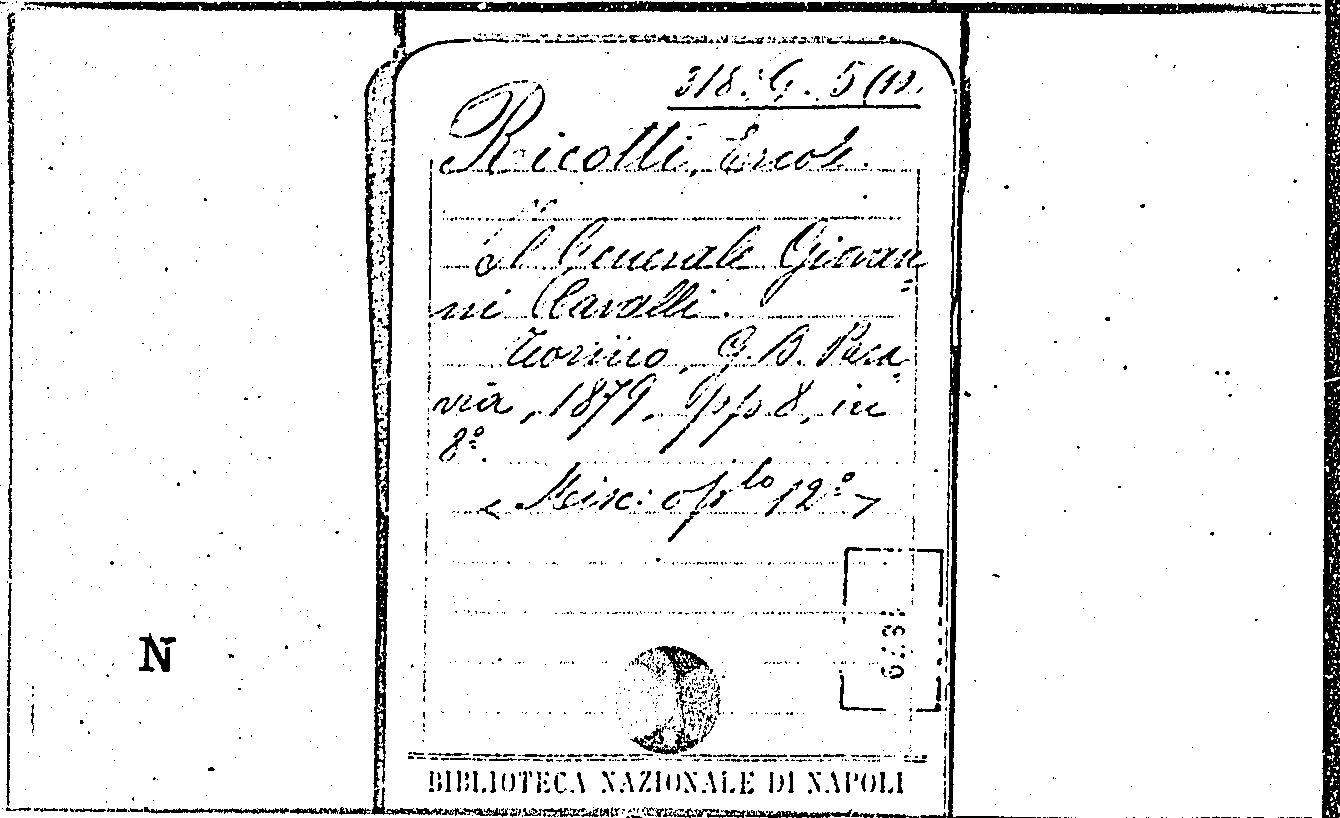 318. G. 5 (12).
Ricotti, Ercole.
Il Generale Giovan
ni Cavalli.
Torino, G. B. Para
via, 1879, pp 8, in
8º.
< Misc: opˡᵒ 12º >
1879
N
BIBLIOTECA NAZIONALE DI NAPOLI